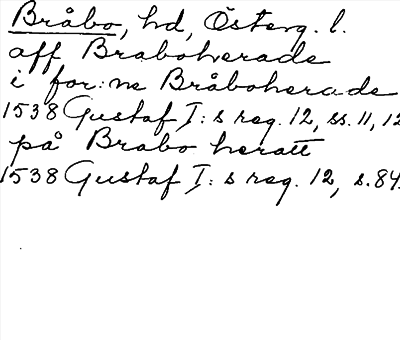 Bråbo, hd, Österg. l.
aff Braboherade
i for:ne Bråboherade
1538 Gustaf I:s reg. 12, ss. 11, 12
på Brabo heratt
1538 Gustaf I:s reg. 12, s. 84.